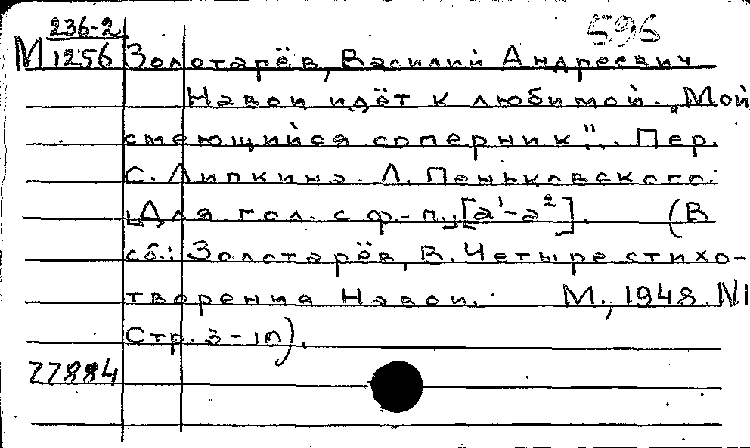 236-2 596
М1256 Золотарёв, Василий Андреевич
Навои идёт к любимой. „Мой
смеющийся соперник“... Пер.
С. Липкина. Л. Пеньковского.
Для гол. с ф.-п. [a¹-a²]. (В
сб.: Золотарёв, В. Четыре стихо-
творения Навои. М., 1948. N1
Стр. 3-10).
27884